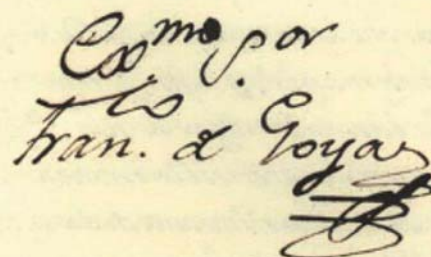 Exmo. Sor
Franco. de Goya